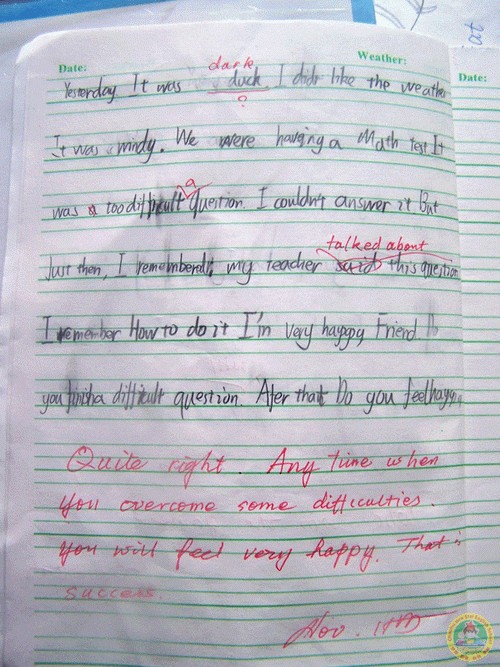 Date:
Weather:
Date:
dark
Yesterday It was duck. I didn't like the weather
?
It was windy. We were having a Math test It
a
was a too difficult question. I couldn't answer it. But
talked about
Just then, I remembered, my teacher said this question
I remember How to do it I'm very happy, Friend Do
you finish a difficult question. After that Do you feel happy
Quite right. Any time when
you overcome some difficulties.
You will feel very happy. That is
success.
Nov.